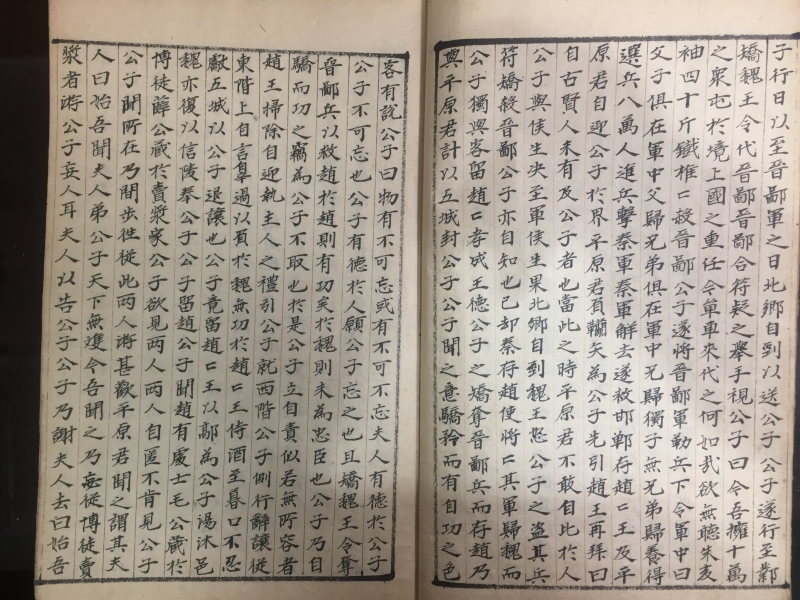 子行日以至晉鄙軍之日北鄉自剄以送公子公子遂行至鄴
矯魏王令代晉鄙晉鄙合符疑之擧手視公子曰今吾擁十萬
之衆屯於境上國之重任今單車來代之何如哉欲無聽朱亥
袖四十斤鐵椎〻殺晉鄙公子遂將晉鄙軍勒兵下令軍中曰
父子俱在軍中父歸兄弟俱在軍中兄歸獨子無兄弟歸養得
選兵八萬人進兵擊秦軍秦軍解去遂救邯鄲存趙〻王及平
原君自迎公子於界平原君負韊矢為公子先引趙王再拜曰
自古賢人未有及公子者也當此之時平原君不敢自比於人
公子與侯生決至軍侯生果北鄉自剄魏王怒公子之盜其兵
符矯殺晉鄙公子亦自知也已却秦存趙使將〻其軍歸魏而
公子獨與客留趙〻孝成王德公子之矯奪晉鄙兵而存趙乃
與平原君計以五城封公子公子聞之意驕矜而有自功之色
客有説公子曰物有不可忘或有不可不忘夫人有德於公子
公子不可忘也公子有德於人願公子忘之也且矯魏王令奪
晉鄙兵以救趙於趙則有功矣於魏則未為忠臣也公子乃自
驕而功之竊為公子不取也於是公子立自責似若無所容者
趙王掃除自迎執主人之禮引公子就西階公子側行辭讓從
東階上自言辠過以負於魏無功於趙〻王侍酒至暮口不忍
獻五城以公子退讓也公子竟留趙〻王以鄗為公子湯沐邑
魏亦復以信陵奉公子公子留趙公子聞趙有處士毛公藏於
博徒薛公藏於賣漿家公子欲見兩人兩人自匿不肯見公子
公子聞所在乃間步徃從此兩人游甚歡平原君聞之謂其夫
人曰始吾聞夫人弟公子天下無雙今吾聞之乃妄從博徒賣
漿者游公子妄人耳夫人以告公子公子乃謝夫人去曰始吾